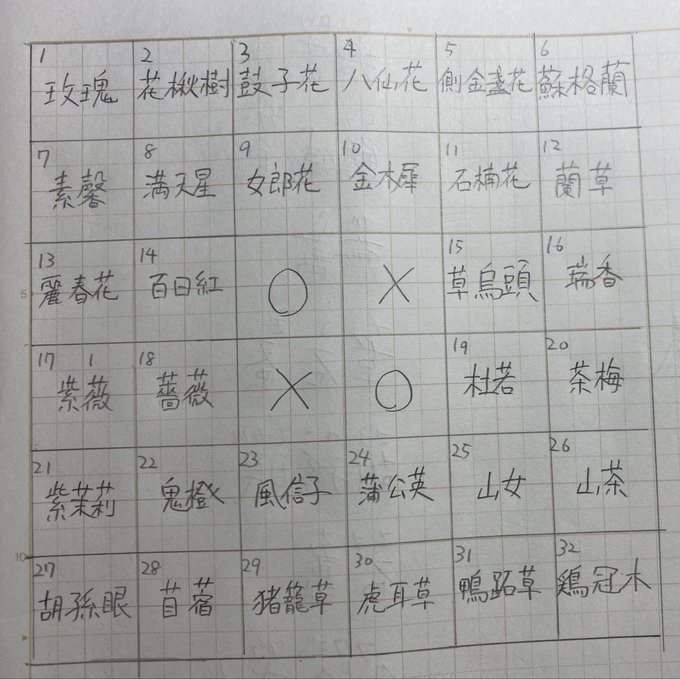 1 2 3 4 5 6
玫瑰 花楸樹 鼓子花 八仙花 側金盞花 蘇格蘭
7 8 9 10 11 12
素馨 満天星 女郎花 金木犀 石楠花 蘭草
13 14 15 16
麗春花 百日紅 ○ × 草烏頭 瑞香
17 1 18 19 20
紫薇 薔薇 × ○ 杜若 茶梅
21 22 23 24 25 26
紫茉莉 鬼橙 風信子 蒲公英 山女 山茶
27 28 29 30 31 32
胡孫眼 苜蓿 猪籠草 虎耳草 鴨跖草 鶏冠木
5
10